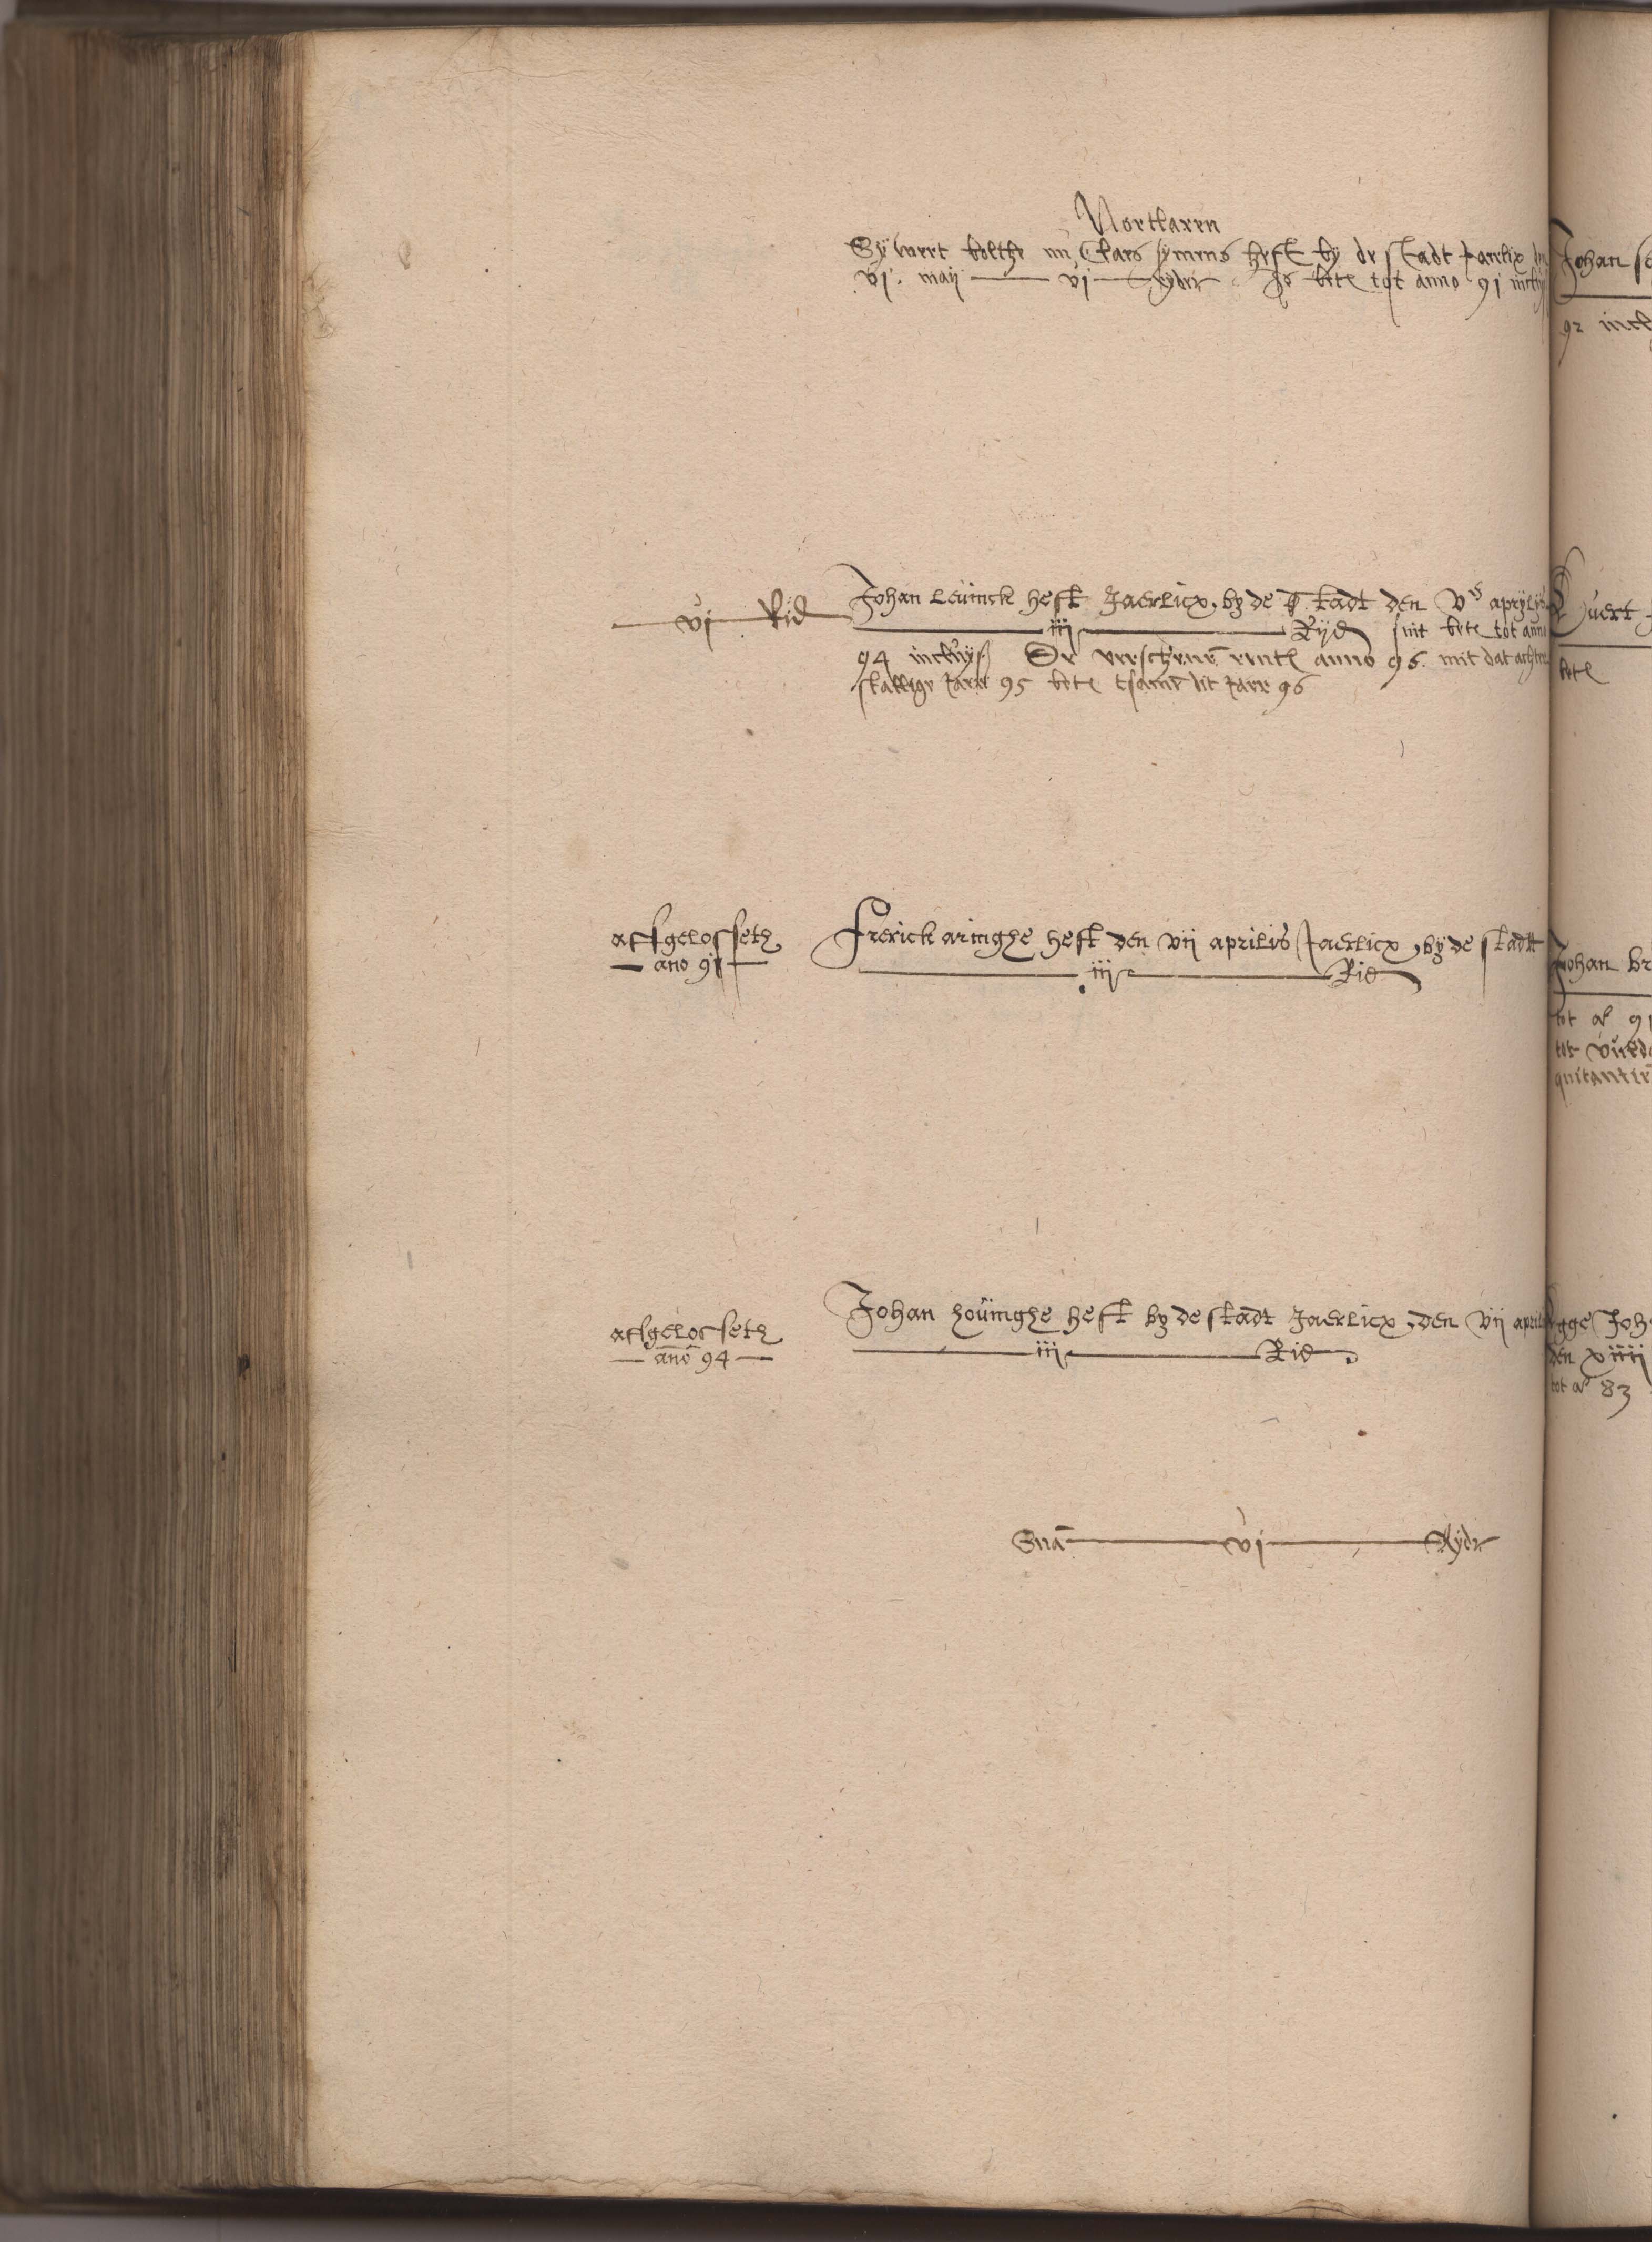 Nortlaren
Sywert bolthe nu Claes symens heft by de stadt Jaerlix
vj. maij vj Ryder Is bete tot anno 91 inclu
vj Rid Johan leuinck heft Jaerlicx, by de Stadt den Vs aprylis
iij Ryd sint bete tot anno
94 incluys De verschene rente anno 96. mit dat achter
stallige Jaer 95 bete tsame dit Jaer 96
affgeloesseth Frerick aringhe heft den vij aprilis Jaerlicx, by de stadt
ano 91 iij Rid
affgeloesseth Johan houinghe heft by de stadt Jaerlicx, den vij aprilis
ano 94 iij Rid
Sua vj Rydr
Johan
92 incl
uert
bete
Johan br
tot a° 91
tot
quitantie
gge Joh
den xiiij
tot a° 83